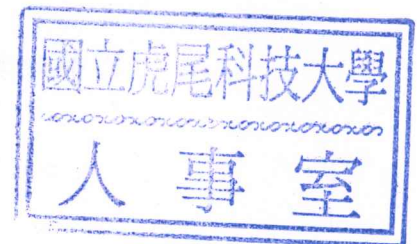 國立虎尾科技大學
人事室